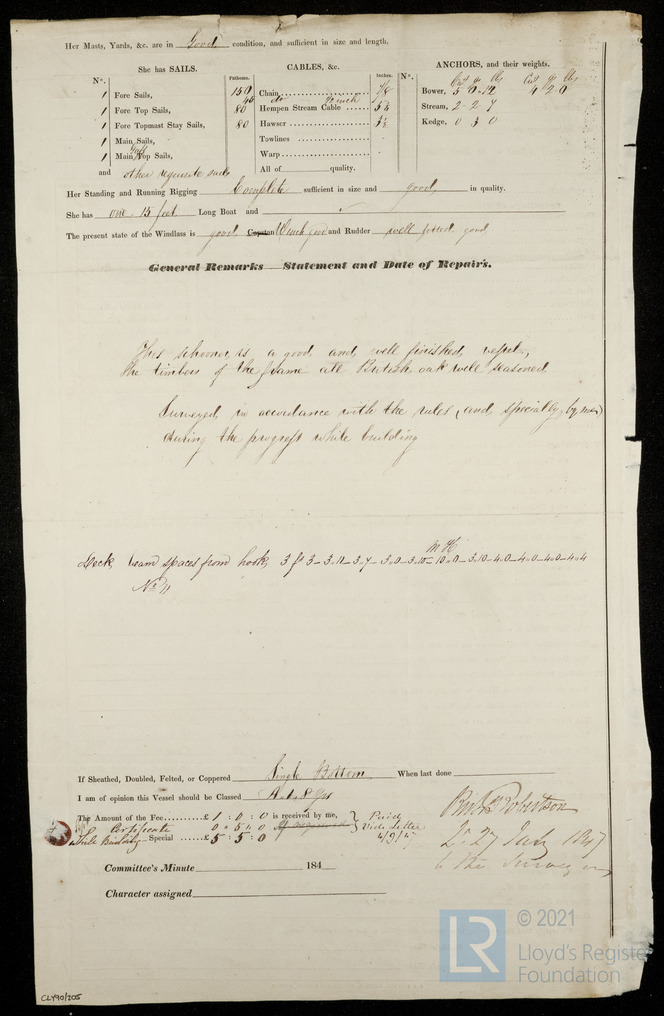 Her Masts, Yards, &c. are in Good condition, and sufficient in size and length.
She has SAILS.
CABLES, &c.
ANCHORS, and their weights.
No.
Fathoms.
Inches.
No.
1 Fore Sails,
1 Fore Top Sails,
1 Fore Topmast Stay Sails,
1 Main Sails,
1 Main Gaff Top Sails,
and other requisite sails
150 Chain 7/8
40 do
80 Hempen Stream Cable
80 Hawser
Towlines
Warp
All of quality.
Cwt qr lbs Cwt qr lbs
Bower, 5 0 12 4 2 0
Stream, 2 - 2 - 7
Kedge, 0 3 0
Her Standing and Running Rigging Complete sufficient in size and good in quality.
She has one 15 feet Long Boat and
The present state of the Windlass is good Capstan Winch good and Rudder well fitted good
General Remarks Statement and Date of Repairs.
This schooner is a good and well finished vessel,
the timbers of the frame all British oak well seasoned
Surveyed in accordance with the rules (and specially, by me)
during the progress while building
M H
Deck beam spaces from hook, 3 ft 3 - 3.11 - 3.7 - 3.0 - 3.10 - 10.0 - 3.10 - 4.0 - 4.0 - 4.0 - 4.4
No 11
If Sheathed, Doubled, Felted, or Coppered Single Bottom When last done
I am of opinion this Vessel should be Classed
The Amount of the Fee £ 1 : 0 : 0 is received by me, Paid
Certificate 0 . 5 . 0 Vide Letter
Special £ 5 : 5 : 0
Robertson
27 July 1847
to the Surveyor
Committee's Minute 184
Character assigned
LR
© 2021
Lloyd's Register
Foundation
CLY90/205